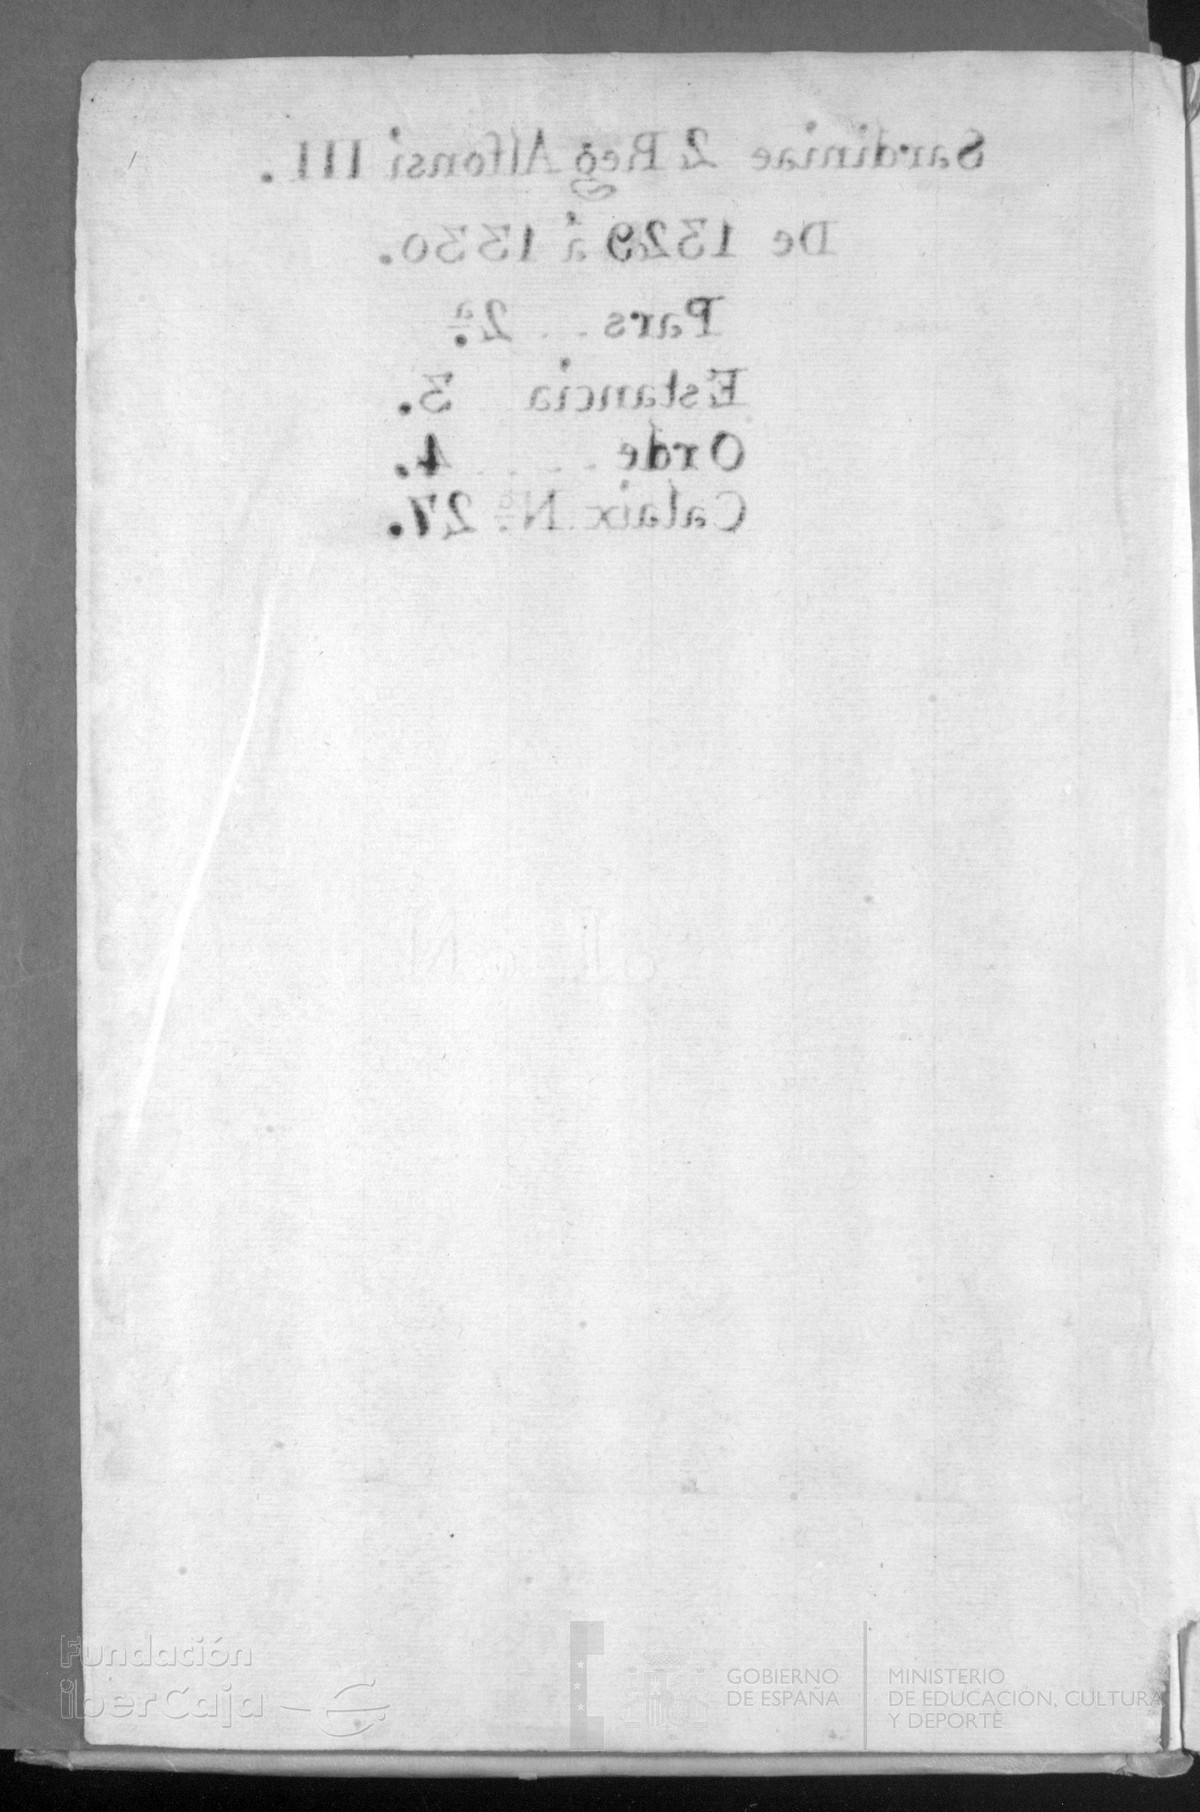 Sardiniae 2 Reg Alfonsi III.
De 1329 á 1330.
Pars .. 2.ª
Estancia 3.
Orde .... 4.
Calaix N.º 27.
Fundación
iberCaja
GOBIERNO
DE ESPAÑA
MINISTERIO
DE EDUCACIÓN, CULTURA
Y DEPORTE